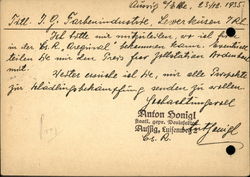 Aussig a/Elbe, 23/XII. 1935.
Titl. I. G. Farbenindustrie, Leverkusen
Ich bitte mir mitzuteilen, wo ich
in der Čs. R. bekommen kann. Eventuell
teilen Sie mir den Preis per Zollstation Bodenbach
mit.
Weiter ersuche ich Sie, mir alle Prospekte
zur Schädlingsbekämpfung senden zu wollen.
Hochachtungsvoll
Anton Honigl
staatl. gepr.
Aussig, Luisen
Čs. R.
Honigl